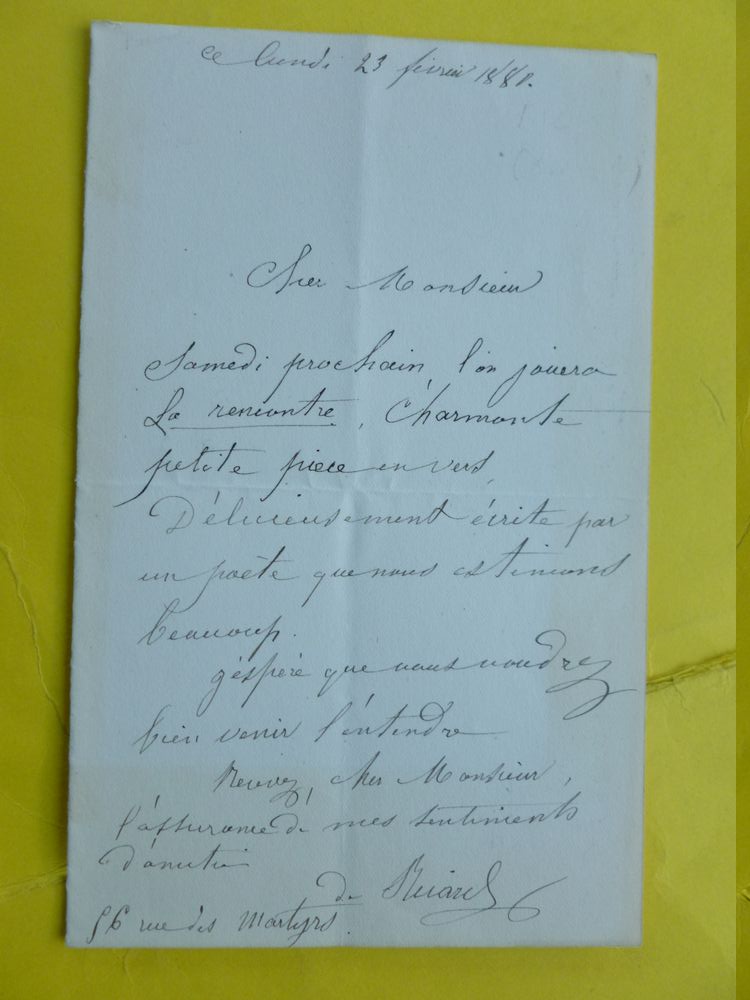 ce lundi 23 février 1880.
Cher Monsieur
Samedi prochain, l'on jouera
La rencontre, Charmante
petite pièce en vers,
Délicieusement écrite par
un poète que nous estimons
beaucoup.
J'espère que vous voudrez
bien venir l'entendre
Recevez, cher Monsieur,
l'assurance de mes sentiments
de
56 rue des Martyrs.